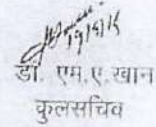 डॉ. एम.ए.खान
कुलसचिव